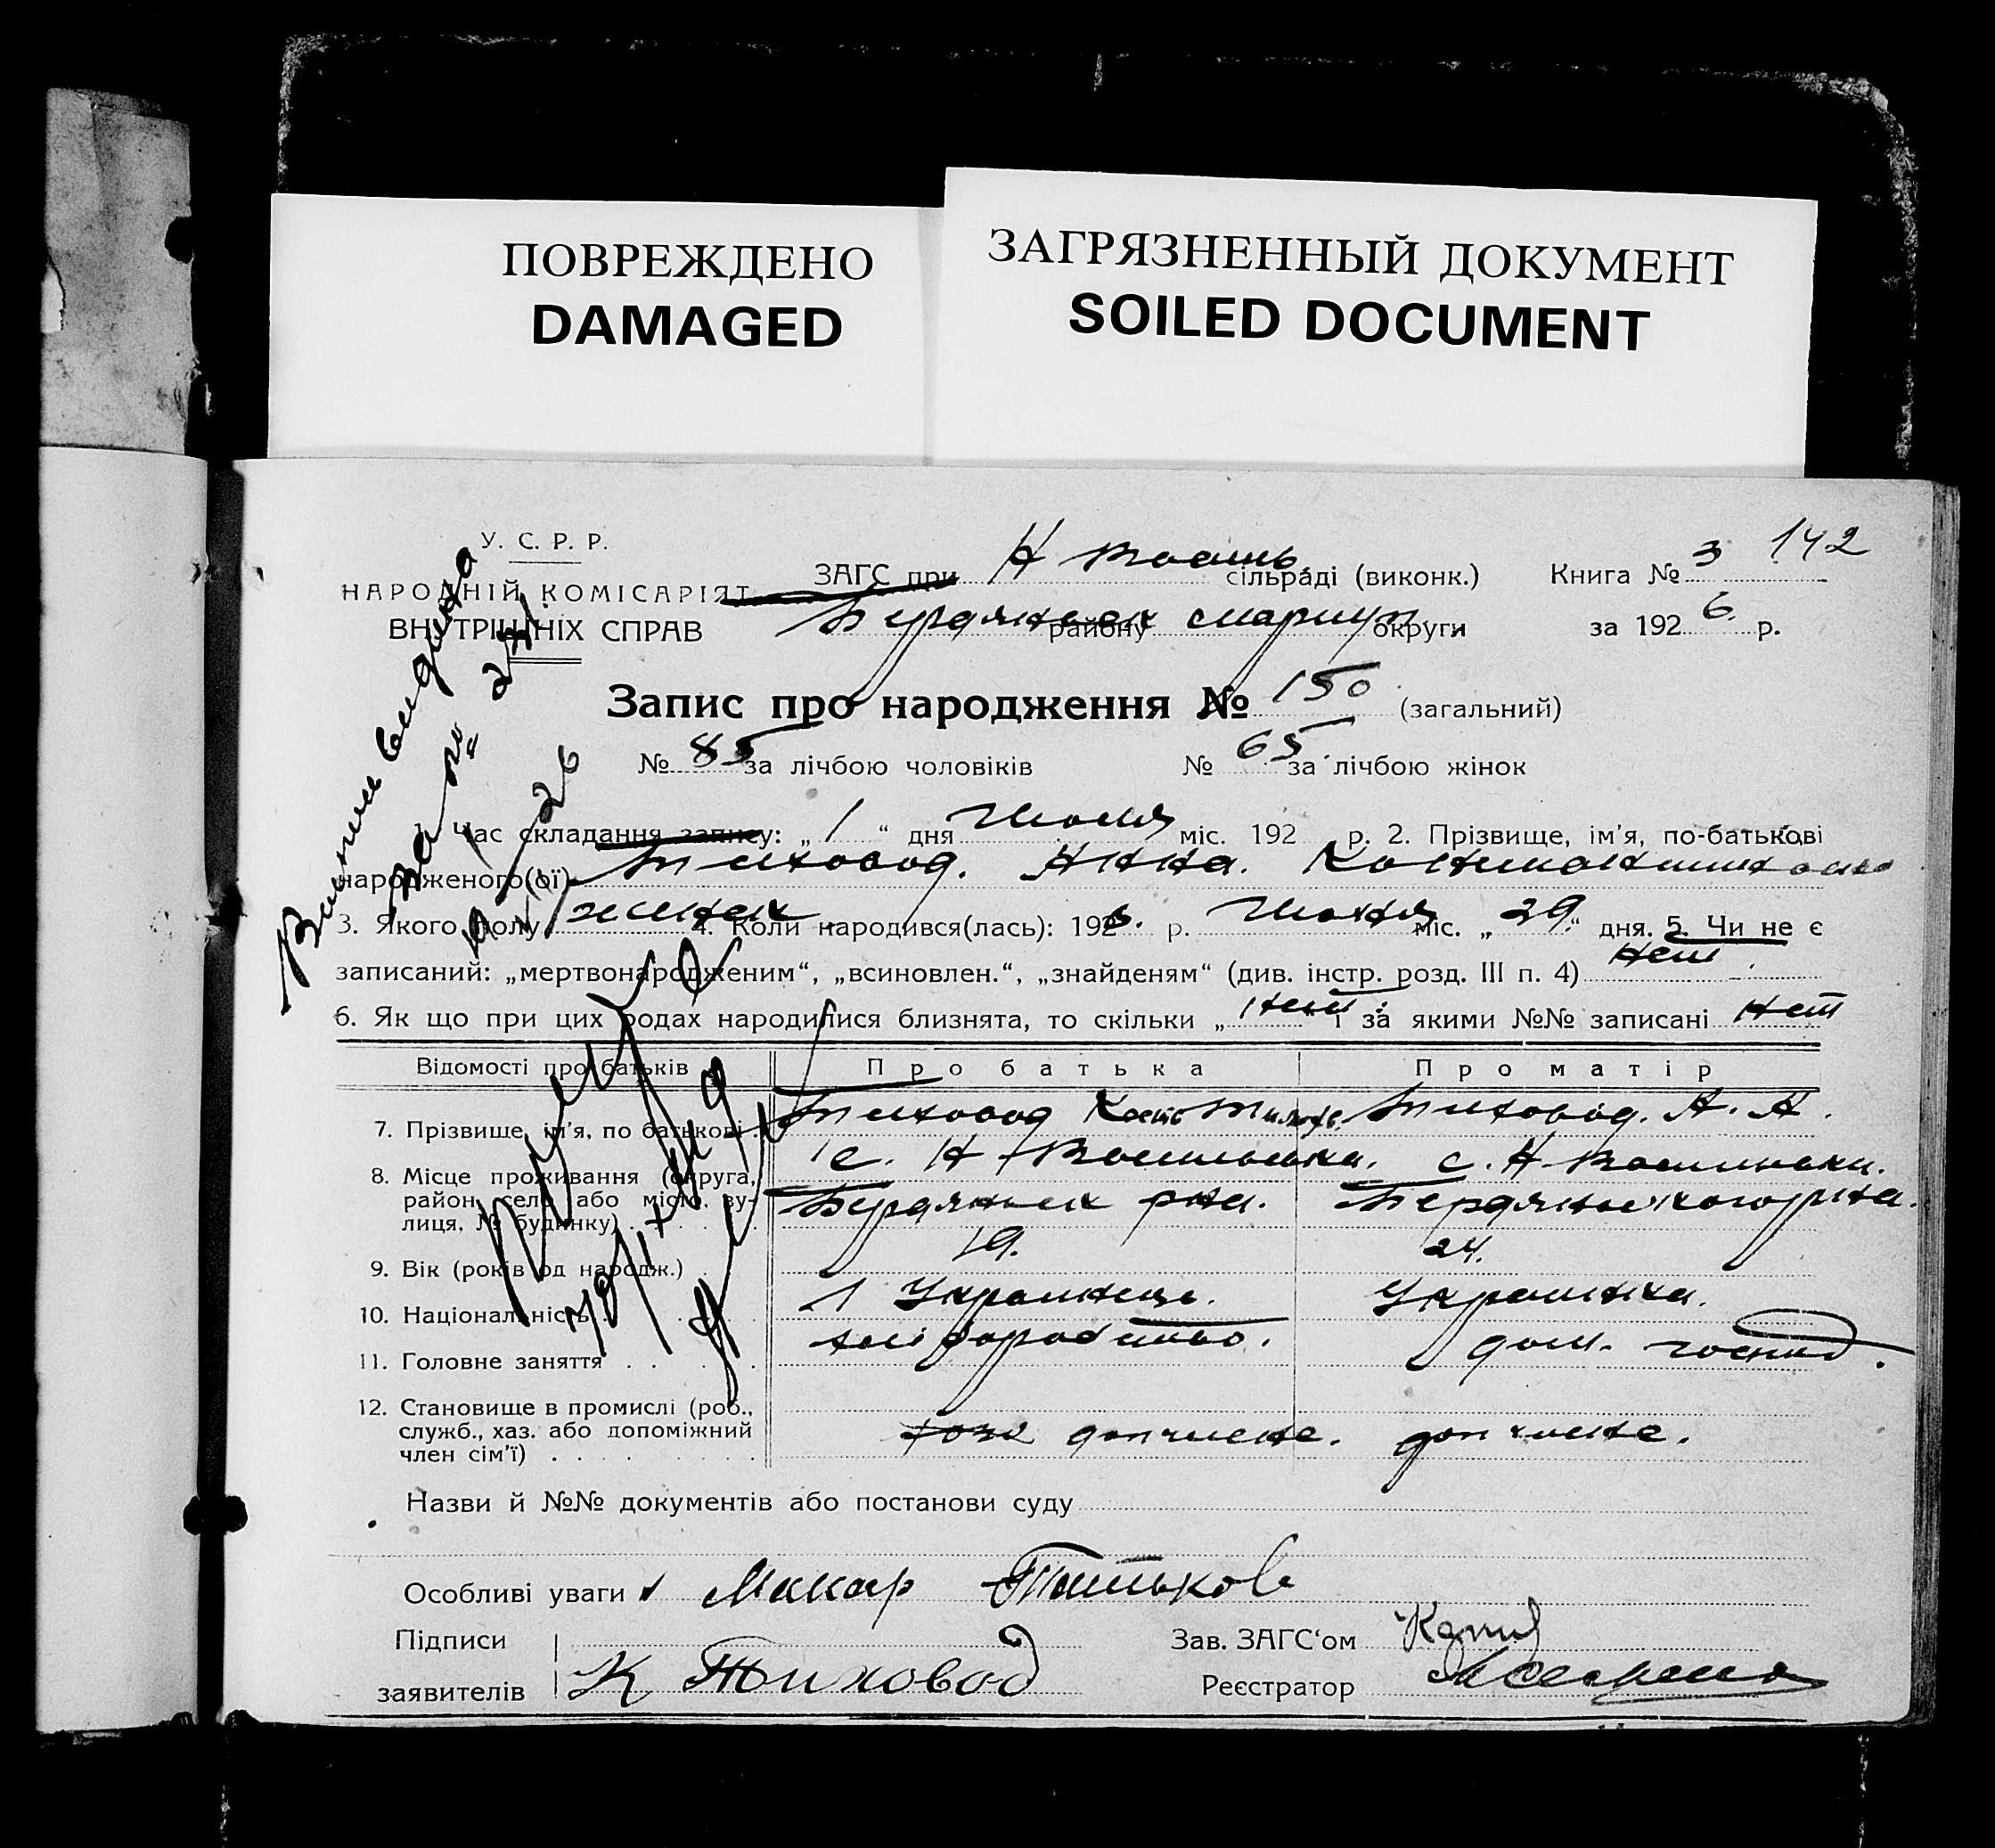 ПОВРЕЖДЕНО
DAMAGED
ЗАГРЯЗНЕННЫЙ ДОКУМЕНТ
SOILED DOCUMENT
У. С. Р. Р.
НАРОДНІЙ КОМІСАРІЯТ
ВНУТРІШНІХ СПРАВ
ЗАГС при Н сільраді (виконк.)
Бердянськ району Мариуп. округи
Книга № 3 142
за 1926. р.
Запис про народження № 150 (загальний)
№ 85 за лічбою чоловіків № 65 за лічбою жінок
час складання запису: „1“ дня Июля міс. 192 р. 2. Прізвище, ім'я, по-батькові
народженого(ої) Тиховод. Анна. Константиновна
3. Якого полу женск 4. Коли народився(лась): 1926. р. міс. „29.“ дня. 5. Чи не є
записаний: „мертвонародженим“, „всиновлен.“, „знайденям“ (див. інстр. розд. III п. 4) Нет.
6. Як що при цих родах народилися близнята, то скільки „нет“ і за якими №№ записані нет
Відомості про батьків Про батька Про матір
7. Прізвище, ім'я, по батькові Тиховод Тиховод. А. А.
8. Місце проживання (округа, район, село або місто, вулиця, № будинку) с. Н с. Н
Бердянськ р-на. Бердянського р-на.
9. Вік (років од народж.) 19. 24.
10. Національність Українець. Українка.
11. Головне заняття хліборобство. дом. господ.
12. Становище в промислі (роб., служб., хаз. або допоміжний член сім'ї) доп члена. доп члена.
Назви й №№ документів або постанови суду
Особливі уваги Макар Титьков
Підписи заявителів К Тиховод
Зав. ЗАГС'ом
Реєстратор